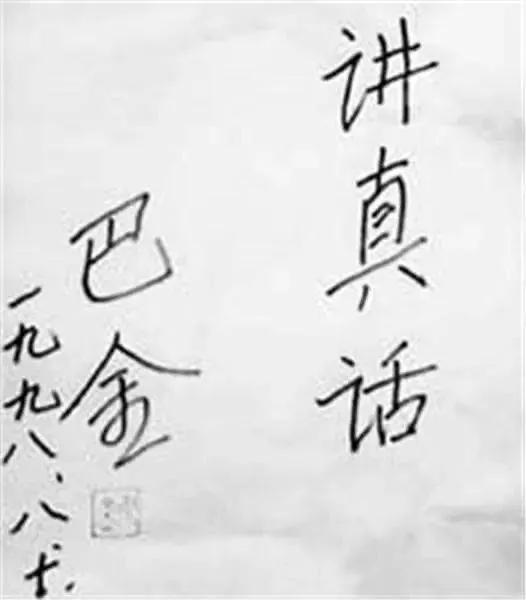 讲真话
巴金
一九九八、八、七.